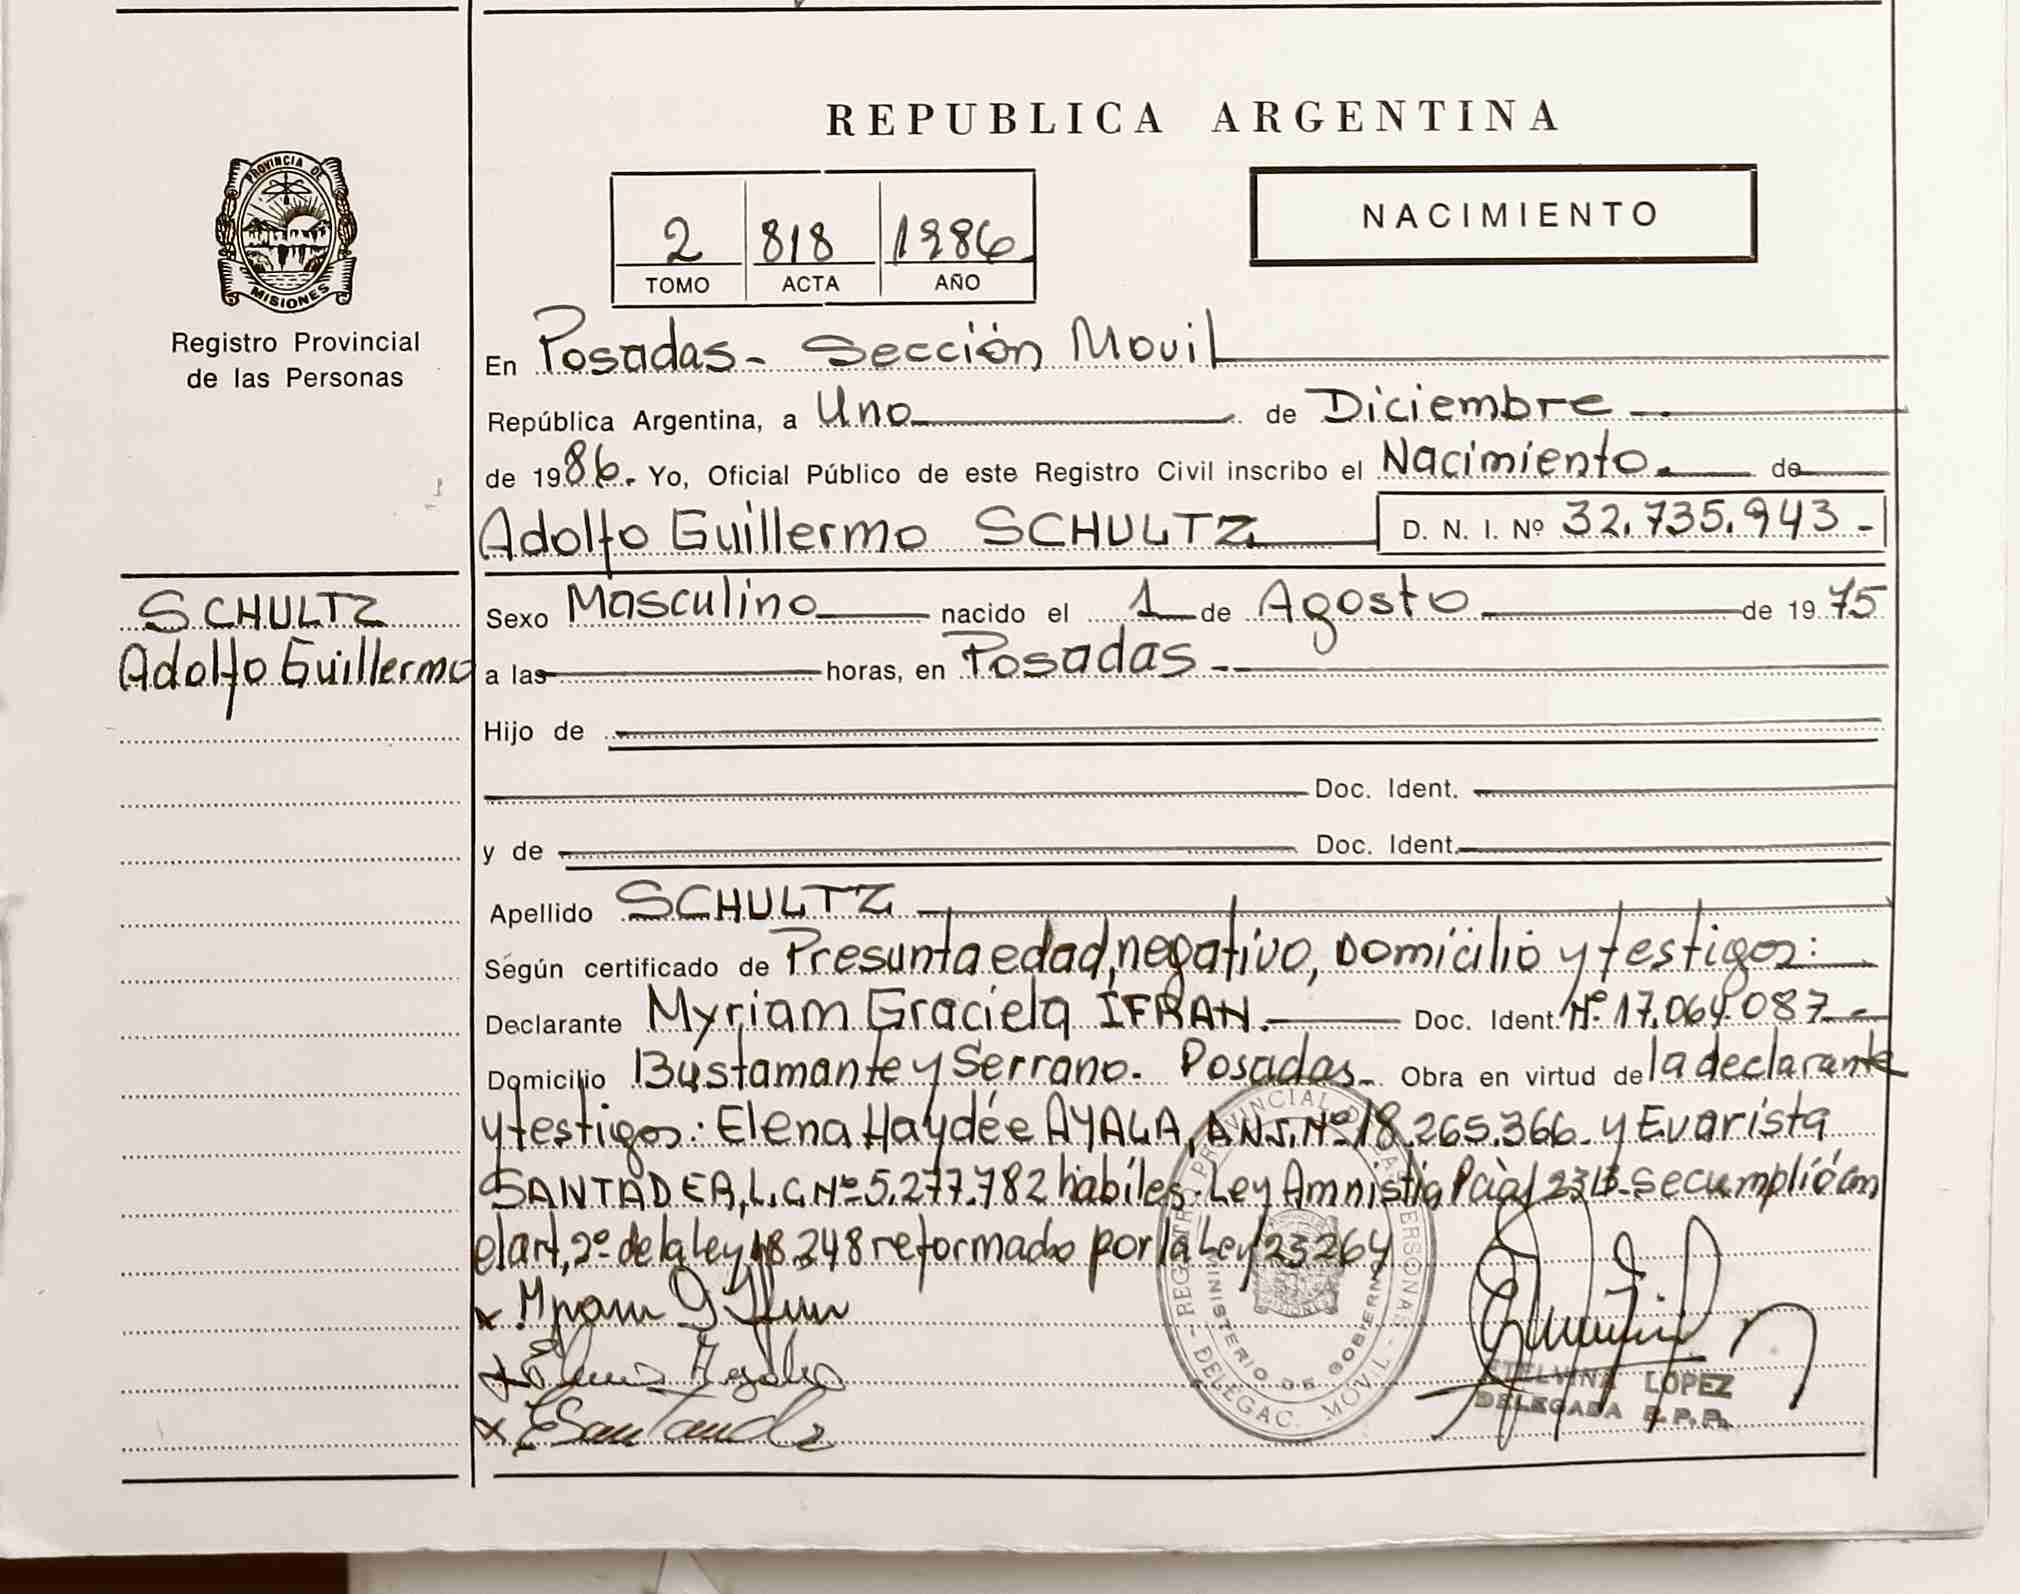 REPUBLICA ARGENTINA
PROVINCIA DE
MISIONES
Registro Provincial
de las Personas
2 818 1986
TOMO ACTA AÑO
NACIMIENTO
En Posadas - Sección Movil
República Argentina, a Uno de Diciembre
de 1986. Yo, Oficial Público de este Registro Civil inscribo el Nacimiento. de
Adolfo Guillermo SCHULTZ D. N. I. Nº 32.735.943.-
SCHULTZ
Adolfo Guillermo
Sexo Masculino nacido el 1 de Agosto de 1975
a las horas, en Posadas
Hijo de
Doc. Ident.
y de Doc. Ident.
Apellido SCHULTZ
Según certificado de Presunta edad, negativo, Domicilio y testigos:
Declarante Myriam Graciela IFRAN. Doc. Ident. Nº 17.064.087.-
Domicilio Bustamante y Serrano. Posadas. Obra en virtud de la declarante
y testigos: Elena Haydée AYALA, Nº 18.265.366. y Evarista
SANTADEA, L.C. Nº 5.277.782 hábiles. Ley Amnistia se cumplió con
el art, 2º de la ley 18.248 reformado por la Ley 23264
REGISTRO PROVINCIAL DE LAS PERSONAS
MINISTERIO DE GOBIERNO
DELEGAC. MOVIL
ETELVINA LOPEZ
DELEGADA R.P.P.